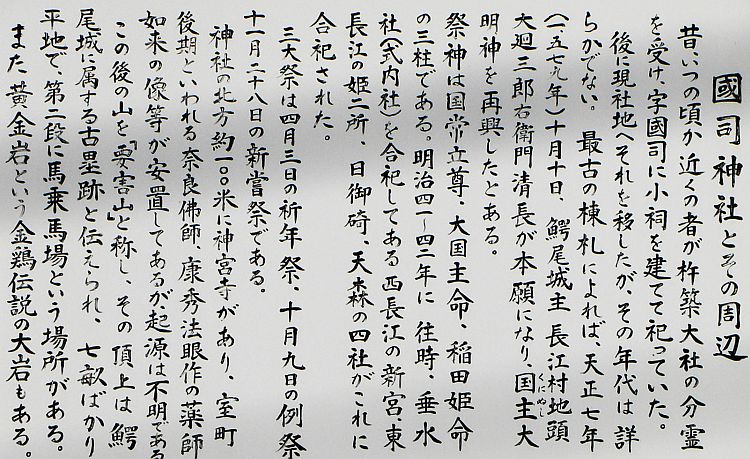 國司神社とその周辺
昔いつの頃か近くの者が杵築大社の分霊
を受け、字國司に小祠を建てて祀っていた。
後に現社地へそれを移したが、その年代は詳
らかでない。最古の棟札によれば、天正七年
(一五七九年)十月十日、鰐尾城主長江村地頭
大廻三郎右衛門清長が本願になり、国主大
くにぬし
明神を再興したとある。
祭神は国常立尊、大国主命、稲田姫命
の三柱である。明治四一~四二年に往時、垂水
社(式内社)を合祀してある西長江の新宮、東
長江の姫二所、日御碕、天森の四社がこれに
合祀された。
三大祭は四月三日の祈年祭、十月九日の例祭
十一月二十八日の新嘗祭である。
神社の北方約一〇〇米に神宮寺があり、室町
後期といわれる奈良佛師、康秀法眼作の薬師
如来の像等が安置してあるが起源は不明である
この後の山を「要害山」と称し、その頂上は鰐
尾城に属する古塁跡と伝えられ、七畝ばかり
平地で、第二段に馬乗馬場という場所がある。
また黄金岩という金鶏伝説の大岩もある。